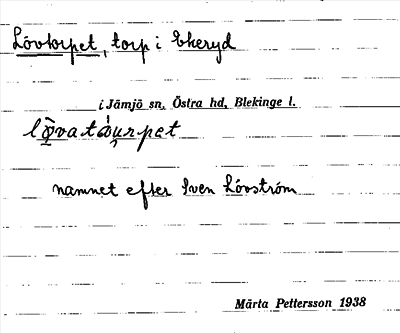 Lövtorpet, torp i Ekeryd
i Jämjö sn, Östra hd, Blekinge l.
namnet efter Sven Lövström
Märta Pettersson 1938